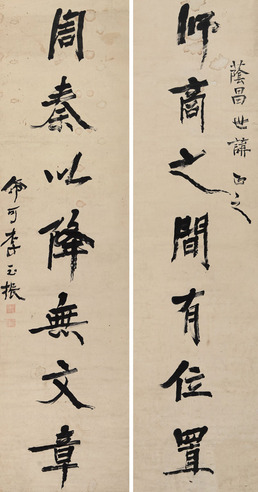 蔭昌世講正之
師商之間有位置
周秦以降無文章
可李玉振